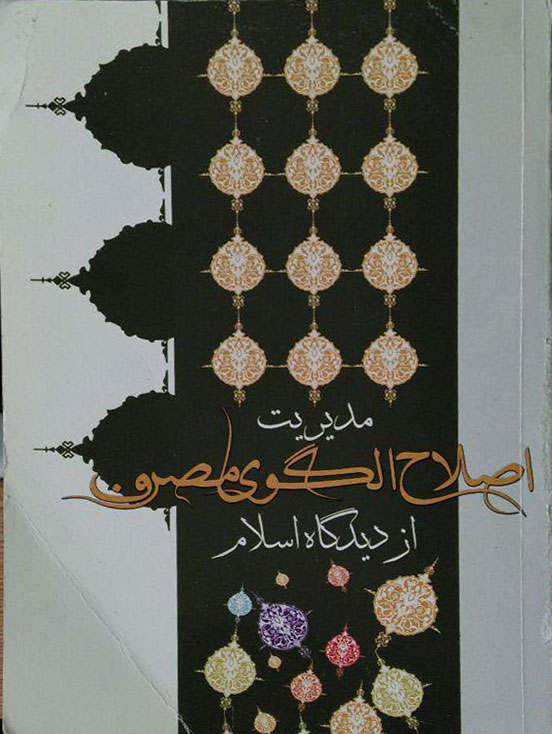 مدیریت
اصلاح الگوی مصرف
از دیدگاه اسلام